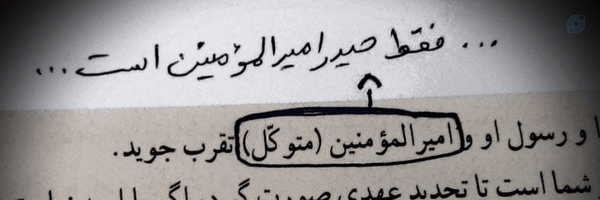 ... فقط حیدر امیرالمؤمنین است ...
ا و رسول او و امیرالمؤمنین (متوکّل) تقرب جوید.
شما است تا تجدید عهدی صورت گیرد